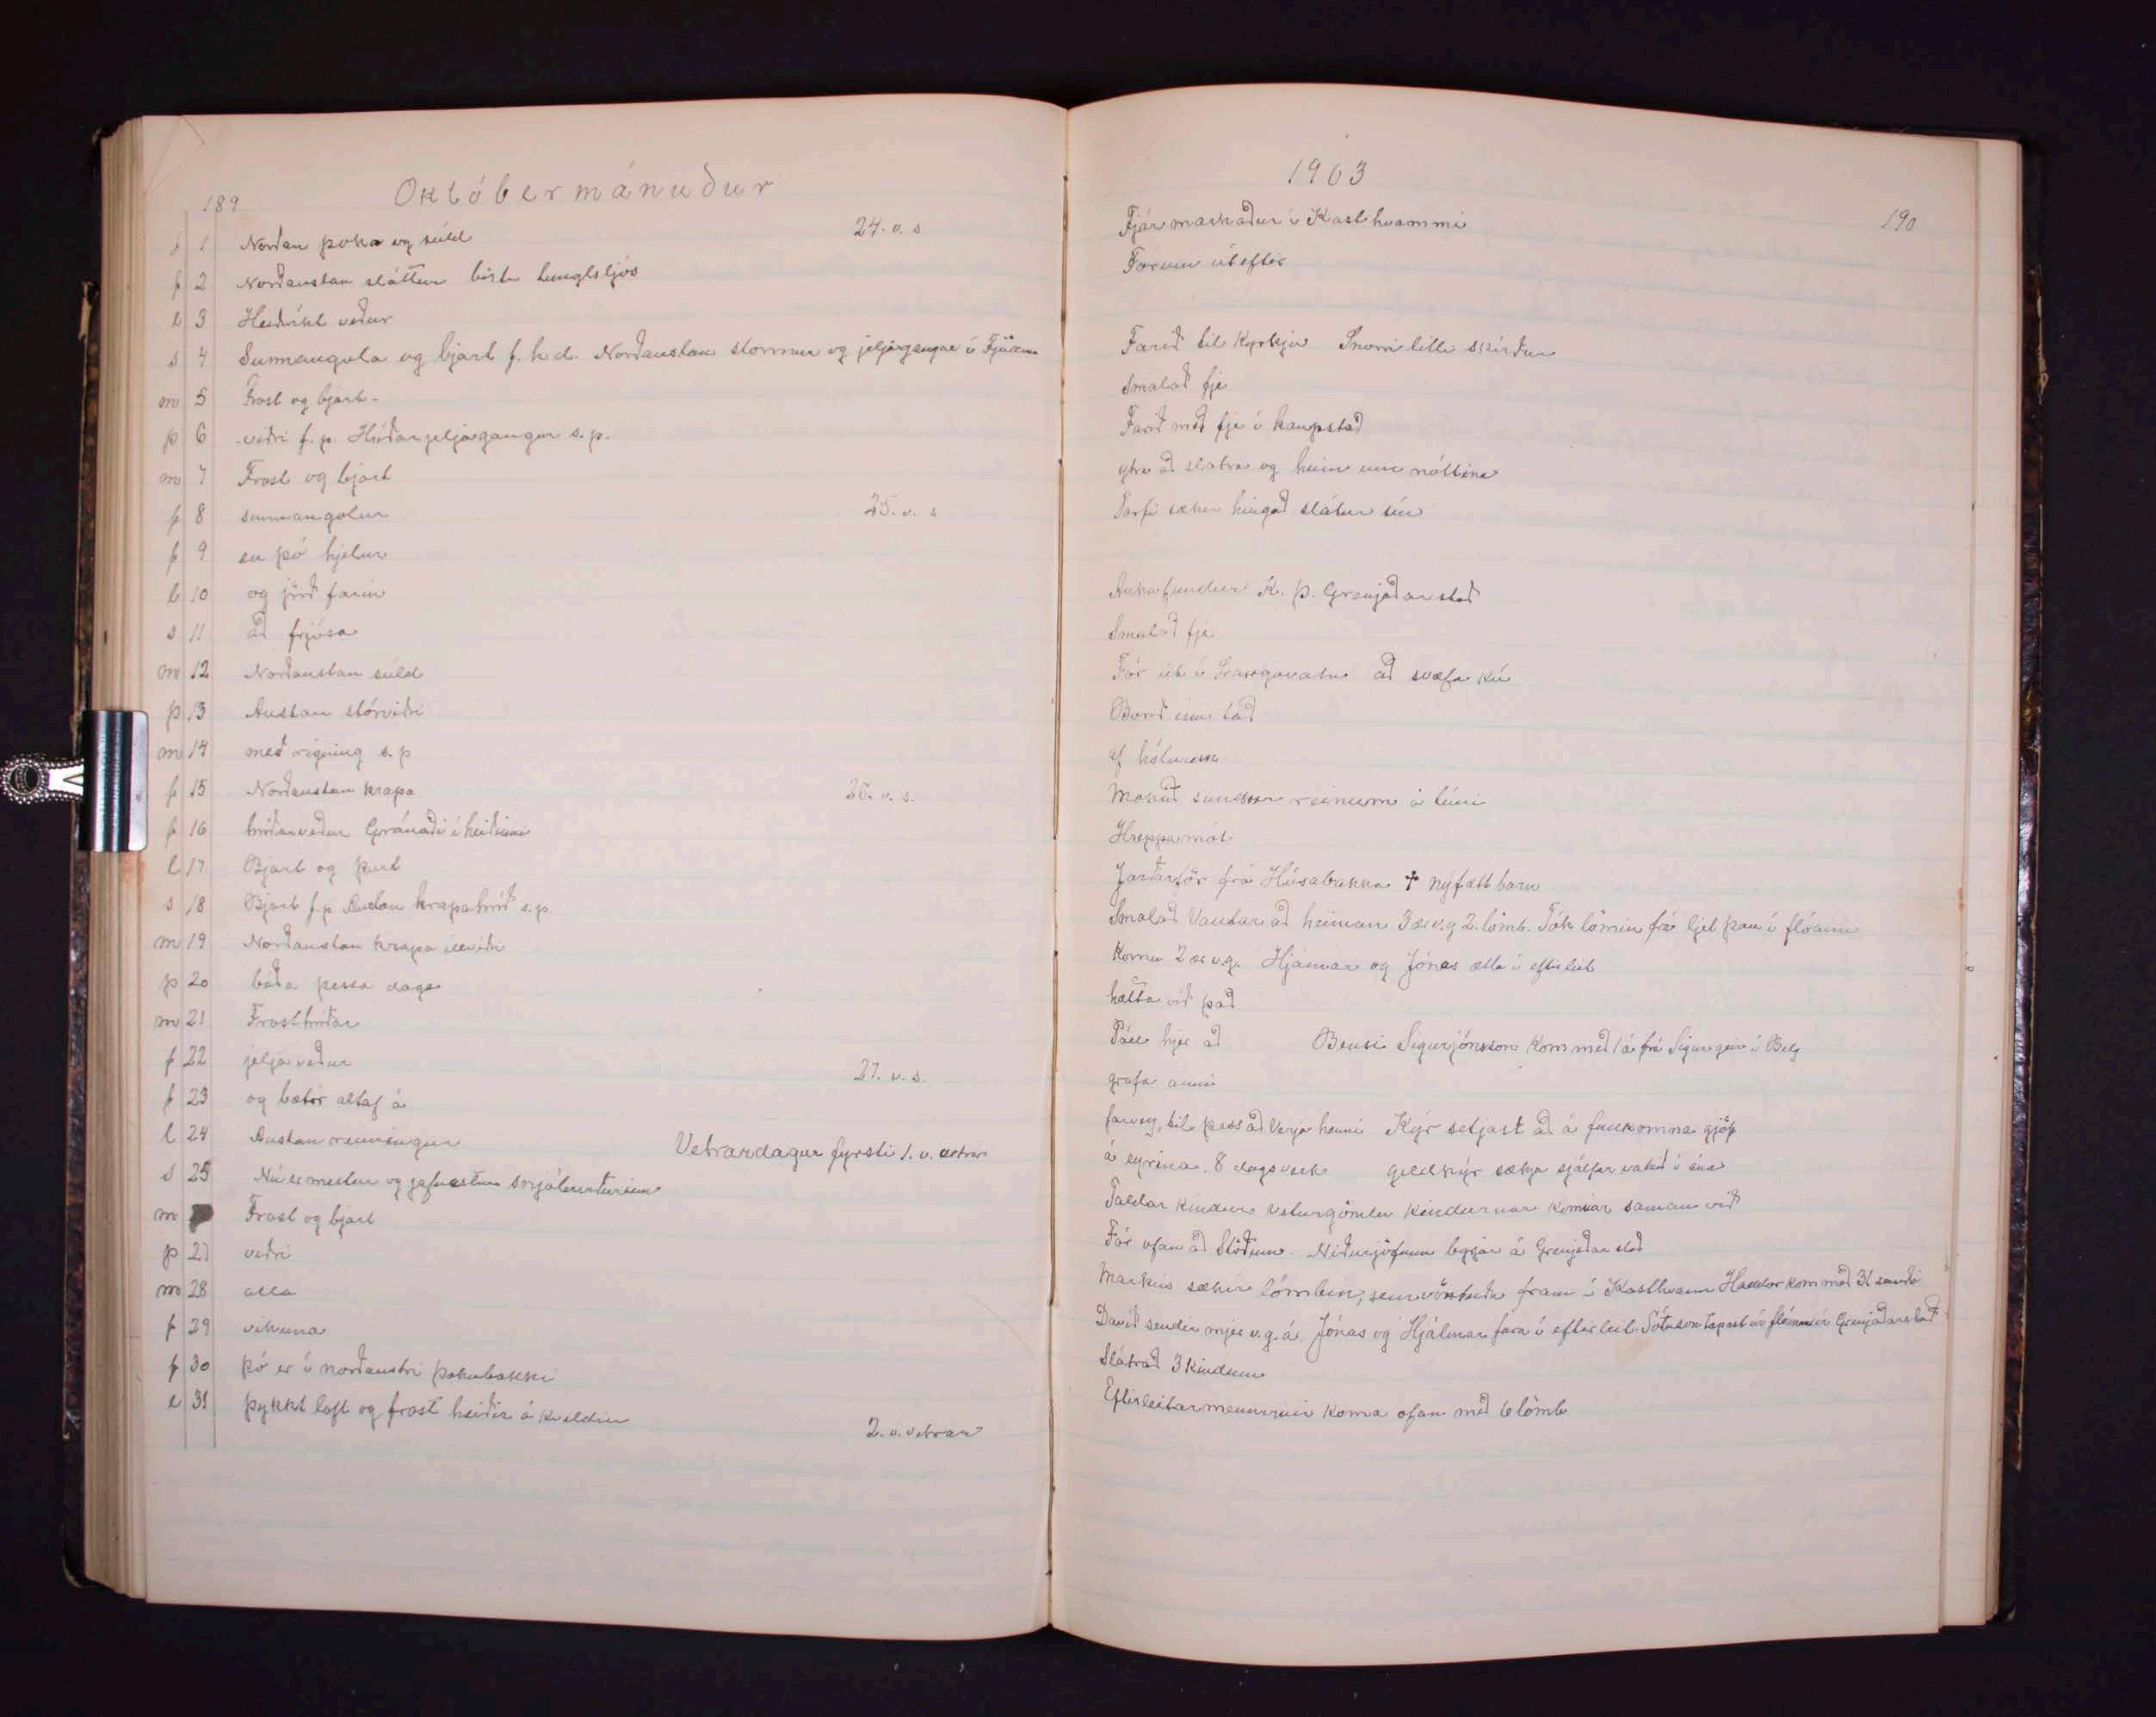 189
Októbermánuður
f 1 Norðan þoka og súld 24. v. s
f 2 Norðaustan sláttur birta tunglsljós
l 3 Heiðríkt veður
s 4 Sunnangola og bjart f. h d. Norðaustan stormur og jeljagangur í
m 5 Frost og bjart-
þ 6 viðri f. p. Hríðarjeljagangur s. p.
m 7 Frost og bjart
f 8 sunnangolur 25. v. s
f 9 en þó hjelur
l 10 og jörð farin
s 11 að frjósa
m 12 Norðaustan súld
þ 13 Austan stórviðri
m 14 með rigning s. p
f 15 Norðaustan krapa 26. v. s.
f 16 hríðarveður Gránaði í heiðinni
l 17 Bjart og þurt
s 18 Bjart f. p. Austan krapahríð s. p.
m 19 Norðaustan krapa illviðri
þ 20 báða þessa daga
m 21 Frosthríðar
f 22 jeljaveður 27. v. s.
f 23 og bætir altaf á
l 24 Austan renningur Vetrardagur fyrsti 1. v. vetrar
s 25 Nú er mestur og jafnastur snjóburðurinn
m Frost og bjart
þ 27 viðri
m 28 alla
f 29 vikuna
f 30 þó er í norðaustri þokubakki
l 31 þykkt loft og frost heiðir á kveldin
2. v. vetrar
1903
190
Fjármarkaður í Kasthvammi
Förum út eftir
Farið til Kyrkju Snorri litli skírður
Smalað fje
Farið með fje í kaupstað
ytra að slatra og heim um nóttina
sækir hingað slátur sín
Aukafundur K. Þ. Grenjaðarstað
Smalað fje
Fór út í Langavatn að svæfa kú
Borið inn tað
af hólunum
Mokað sundur reinum á túni
Hreppamót
Jarðarför frá Húsabakka † nýfætt barn
Smalað Vantar að heiman 3 æ v. g 2. lömb. Tók lömin frá þau í flóann
Komu 2 æ v. g. Hjálmar og Jónas ætla í eftirleit
hætta við það
Páll hjer að Bensi Sigurjónsson kom með 1 á frá Sigurgeir í Belg
grafa ánni
farveg, til þess að verja henni Kýr setjast að á fullkomna gjöf
á eyrina. 8 dagsverk geldkýr sækja sjálfar vatnið í ána
Taldar kindur veturgömlu kindurnar komnar saman við
Fór ofan að Stöðum. Niðurjöfnun byrjar á Grenjaðarstað
Markús sækir lömbin, sem vöntuðu fram í Kasthvamm Halldor kom með 31 sauði
Davíð sendir mjer v. g. á. Jónas og Hjálmar fara í eftirleit. tapast úr flóanum í Grenjaðarstað
Slátrað 3 kindum
Eftirleitarmennirnir koma ofan með 6 lömb